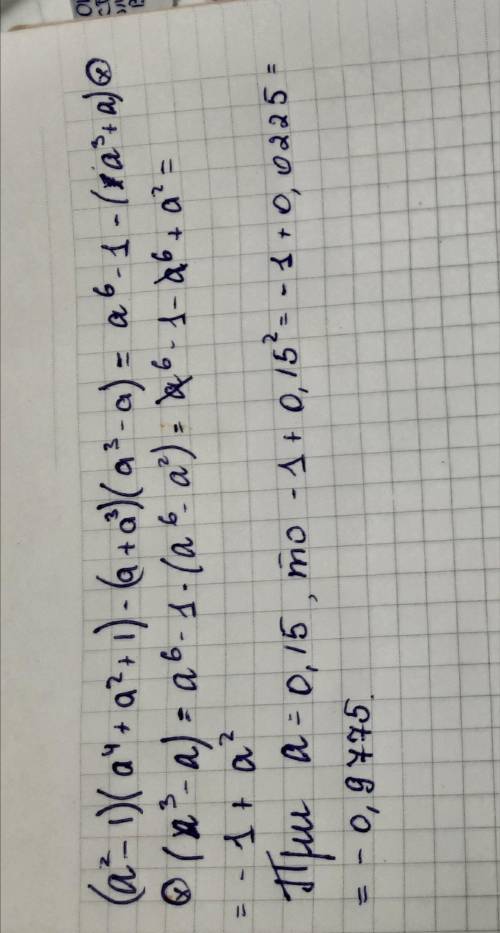 (a² - 1)(a⁴ + a² + 1) - (a + a³)(a³ - a) = a⁶ - 1 - (a³ + a) ⊗
⊗ (a³ - a) = a⁶ - 1 - (a⁶ - a²) = a⁶ - 1 - a⁶ + a² =
= - 1 + a²
При a = 0,15, то - 1 + 0,15² = - 1 + 0,0225 =
= - 0,9775.